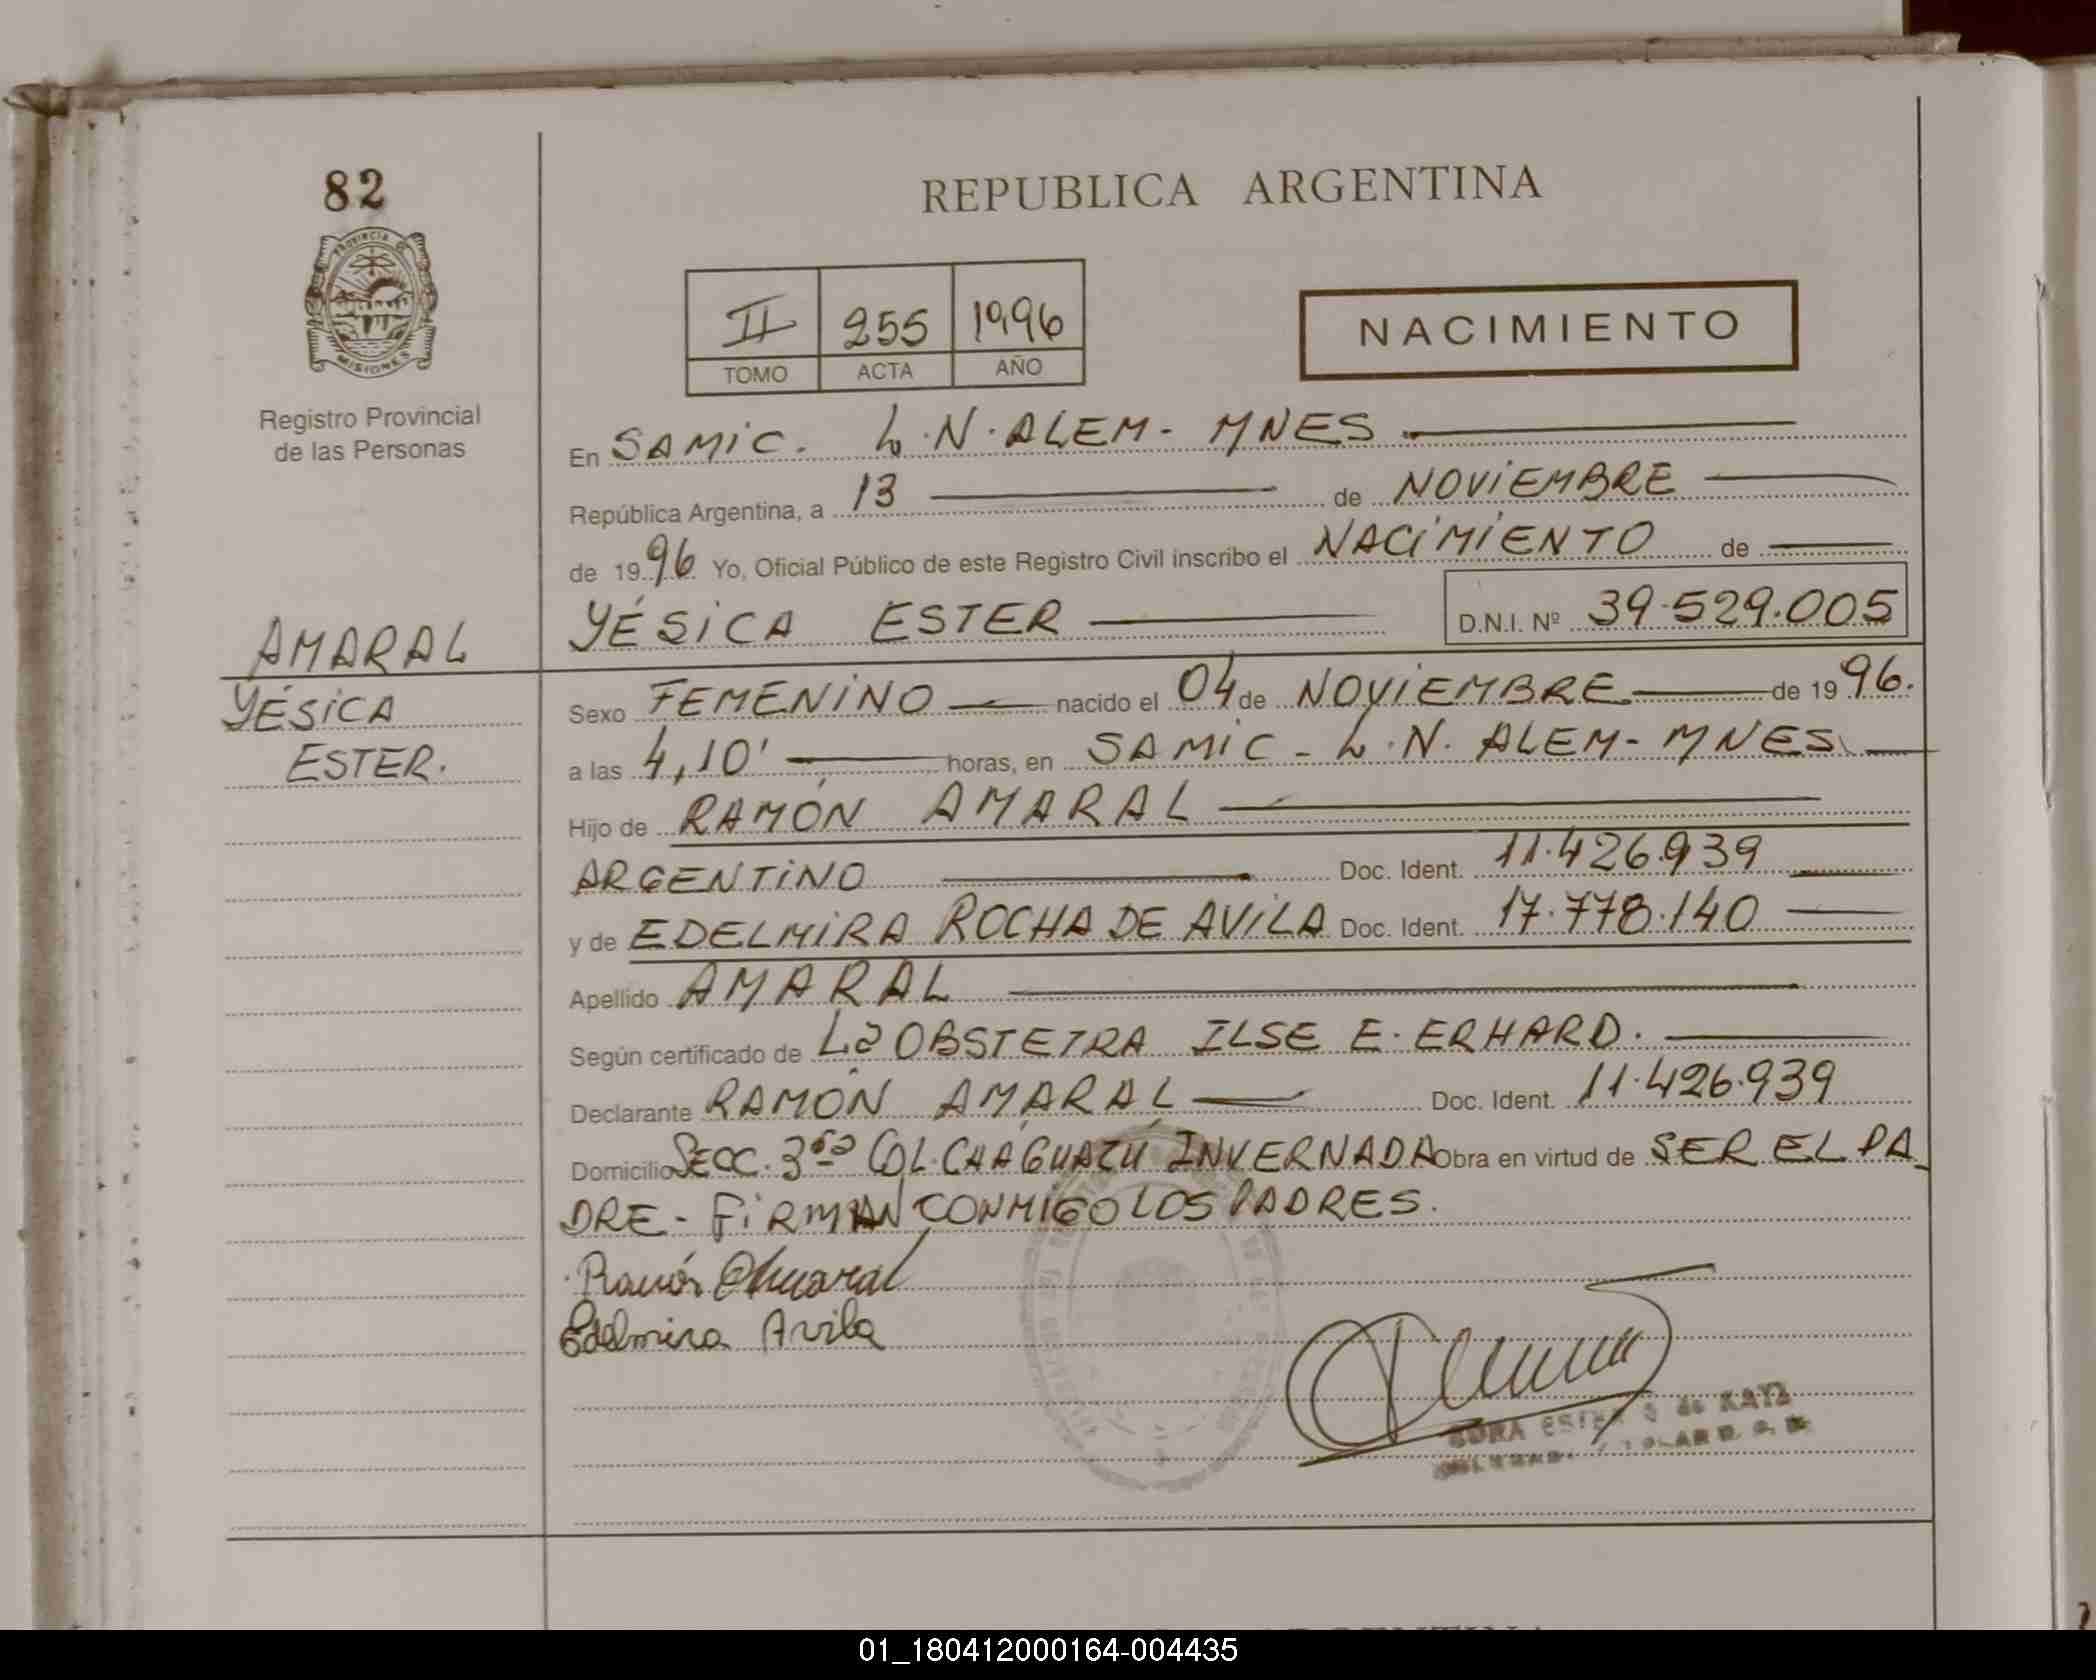 82
REPUBLICA ARGENTINA
PROVINCIA DE
MISIONES
Registro Provincial
de las Personas
II 255 1996
TOMO ACTA AÑO
NACIMIENTO
En SAMIC. L.N. ALEM - MNES
República Argentina, a 13 de NOVIEMBRE
de 1996 Yo, Oficial Público de este Registro Civil inscribo el NACIMIENTO de
YÉSICA ESTER D.N.I. Nº 39.529.005
AMARAL
YÉSICA
ESTER.
Sexo FEMENINO nacido el 04 de NOVIEMBRE de 1996.
a las 4,10' horas, en SAMIC - L.N. ALEM - MNES
Hijo de RAMÓN AMARAL
ARGENTINO Doc. Ident. 11.426.939
y de EDELMIRA ROCHA DE AVILA Doc. Ident. 17.778.140
Apellido AMARAL
Según certificado de La OBSTETRA ILSE E. ERHARD.
Declarante RAMÓN AMARAL Doc. Ident. 11.426.939
Domicilio SECC. 3ra COL. CAÁGUAZÚ INVERNADA Obra en virtud de SER EL PA
DRE - FIRMAN CONMIGO LOS PADRES.
Ramón Amaral
Edelmira Avila
ESTER de KATZ
01_180412000164-004435